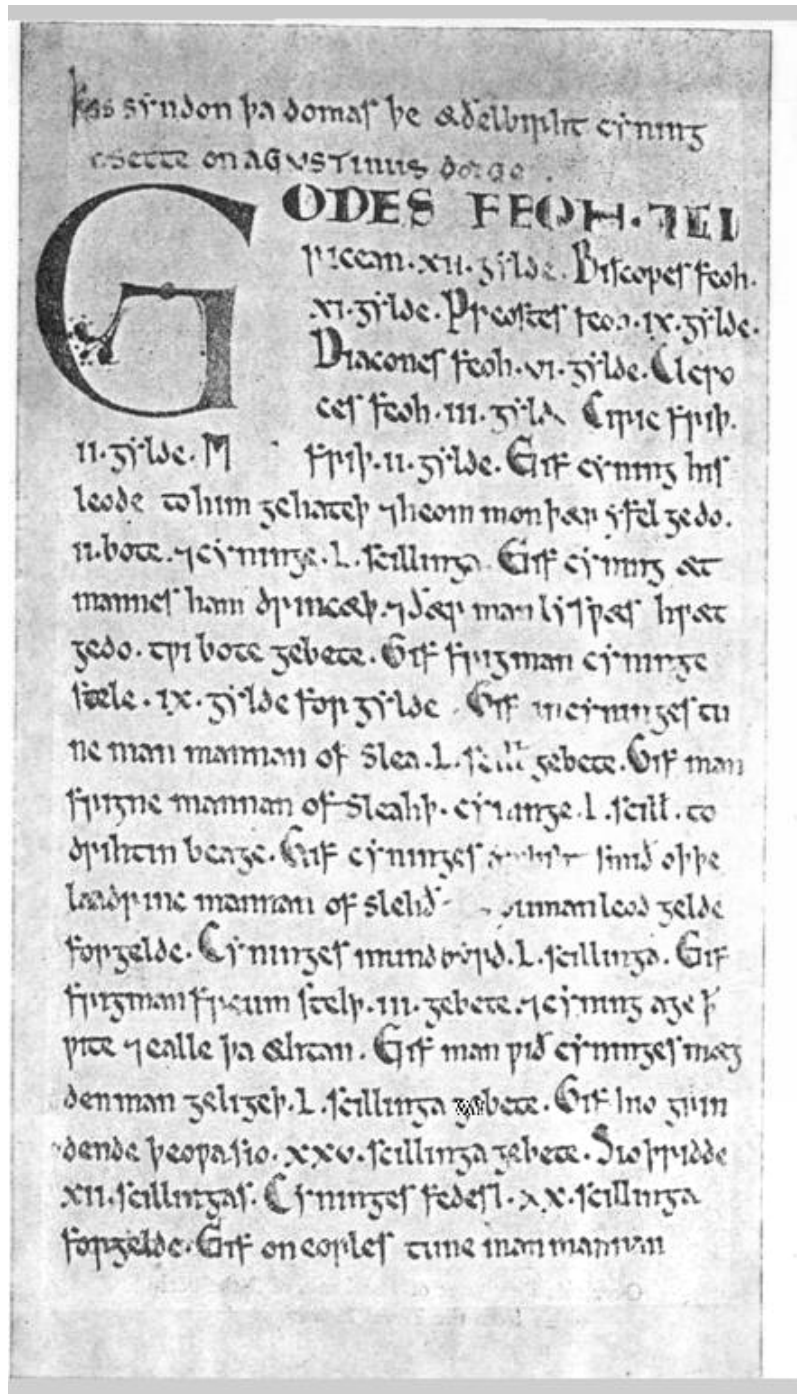 Þas syndon þa domas þe æðelbirht cyning
asette on AGVSTInus dæge.
GODES FEOH. ⁊ CI
ricean. xii. gylde. Biscopes feoh.
xi. gylde. Preostes feoh. ix. gylde.
Diacones feoh. vi. gylde. Clero
ces feoh. iii. gylde Ciric friþ.
ii. gylde. M friþ. ii. gylde. Gif cyning his
leode to him gehateþ ⁊ heom mon þær yfel gedo.
ii. bote. ⁊ cyninge. L. scillinga. Gif cyning æt
mannes ham drincæþ. ⁊ ðær man lyswæs hwæt
gedo. twi bote gebete. Gif frigman cyninge
stele. ix. gylde forgylde. Gif in cyninges tu
ne man mannan of slea. L. scill gebete. Gif man
frigne mannan of sleahþ. cyninge. L. scill. to
drihtin beage. Gif cyninges smið oþþe
laadrinc mannan of slehð man leod gelde
forgelde. Cyninges mund byrd. L. scillinga. Gif
frigman freum stelþ. iii. gebete. ⁊ cyning age þ̄
wite ⁊ ealle þa æhtan. Gif man wið cyninges mæg
den man geligeþ. L. scillinga gebete. Gif hio grin
dende þeowa sio. xxv. scillinga gebete. Sio þridde
xii. scillingas. Cyninges fedesl. xx. scillinga
forgelde. Gif on eorles tune man mannan